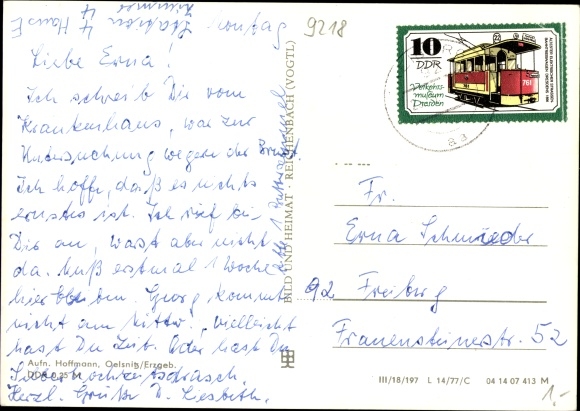 Montag
Station 4 Haus E
Zimmer 4
Liebe Erna!
Ich schreib Dir vom
Krankenhaus, war zur
Untersuchung wegen der Brust.
Ich hoffe, daß es nichts
ernstes ist. Ich rief bei
Dir an, warst aber nicht
da. Muß erstmal 1 Woche
hier bleiben. Georg kommt
nicht am Mittw., vielleicht
hast Du Zeit. Oder hast Du
Silberhochzeitsdrasch.
Herzl. Grüße D. Lisbeth.
9218
BILD UND HEIMAT · REICHENBACH (VOGTL)
10
DDR
Verkehrs-
museum
Dresden
22
761
Fr.
Erna Schmieder
92 Freiberg
Frauensteinerstr. 52
Aufn. Hoffmann, Oelsnitz/Erzgeb.
DDR 0,25 M
III/18/197 L 14/77/C 04 14 07 413 M
1,-